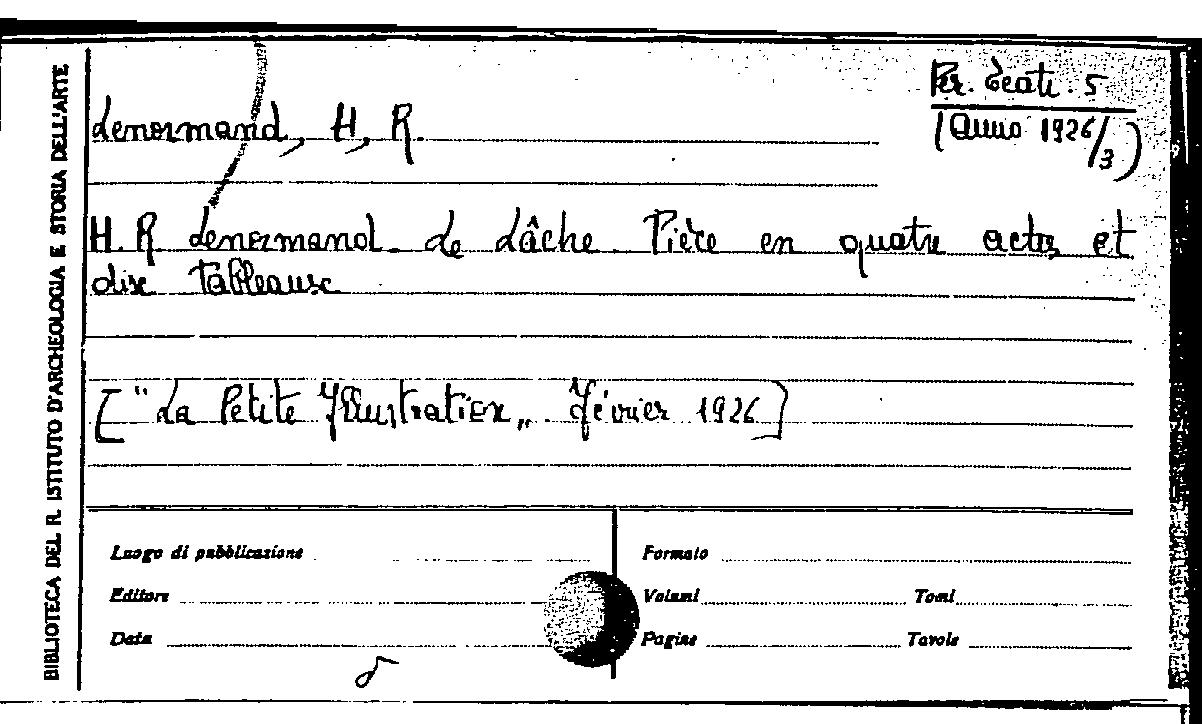 BIBLIOTECA DEL R. ISTITUTO D'ARCHEOLOGIA E STORIA DELL'ARTE
Per. Teatr. 5
(Anno 1926/3)
Lenormand, H, R.
H. R. Lenormand. Le Lâche. Pièce en quatre actes et
dix tableaux
["La Petite Illustration„. Février 1926]
Luogo di pubblicazione
Formato
Editore
Volumi
Tomi
Data
Pagine
Tavole